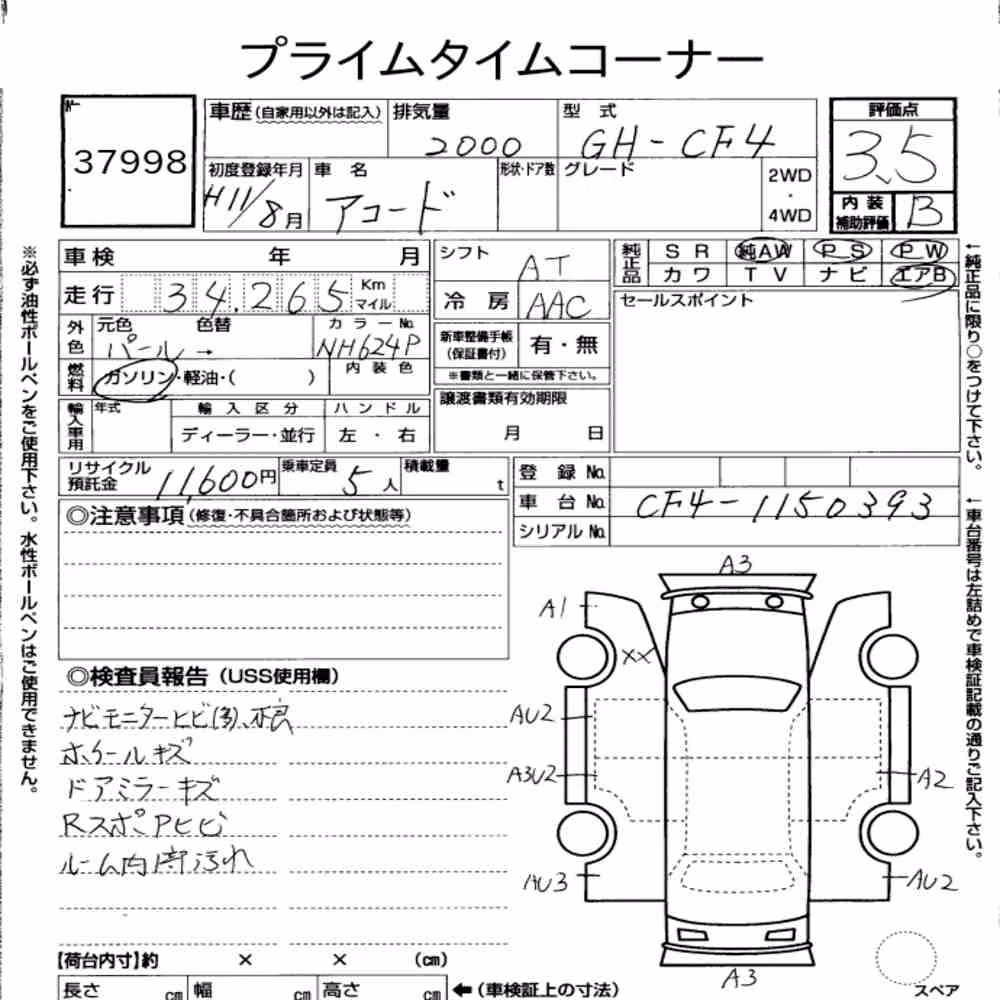 プライムタイムコーナー
37998
車歴 (自家用以外は記入) 排気量 2000 型式 GH-CF4
評価点 3.5
初度登録年月 H11/8月 車名 アコード 形状・ドア数 グレード 2WD・4WD
内装補助評価 B
車検 年 月
走行 34,265 Km マイル
外色 元色 パール→ 色替 カラーNo. NH624P
燃料 ガソリン・軽油・( ) 内装色
輸入車用 年式 輸入区分 ディーラー・並行 ハンドル 左・右
シフト AT
冷房 AAC
新車整備手帳(保証書付) 有・無
※書類と一緒に保管下さい。
譲渡書類有効期限 月 日
純正品 SR 純AW PS PW
カワ TV ナビ エアB
セールスポイント
リサイクル預託金 11,600円 乗車定員 5人 積載量 t
登録No.
車台No. CF4-1150393
シリアルNo.
◎注意事項(修復・不具合箇所および状態等)
◎検査員報告(USS使用欄)
ナビモニターヒビ
ホイールキズ
ドアミラーキズ
Rスポアヒビ
ルーム内部汚れ
A3
A1
XX
AU2
A3U2
A2
AU3
AU2
A3
【荷台内寸】約 × × (cm)
長さ cm 幅 cm 高さ cm ←(車検証上の寸法)
スペア
※必ず油性ボールペンをご使用下さい。水性ボールペンはご使用できません。
←純正品に限り○をつけて下さい。
←車台番号は左詰めで車検証記載の通りご記入下さい。